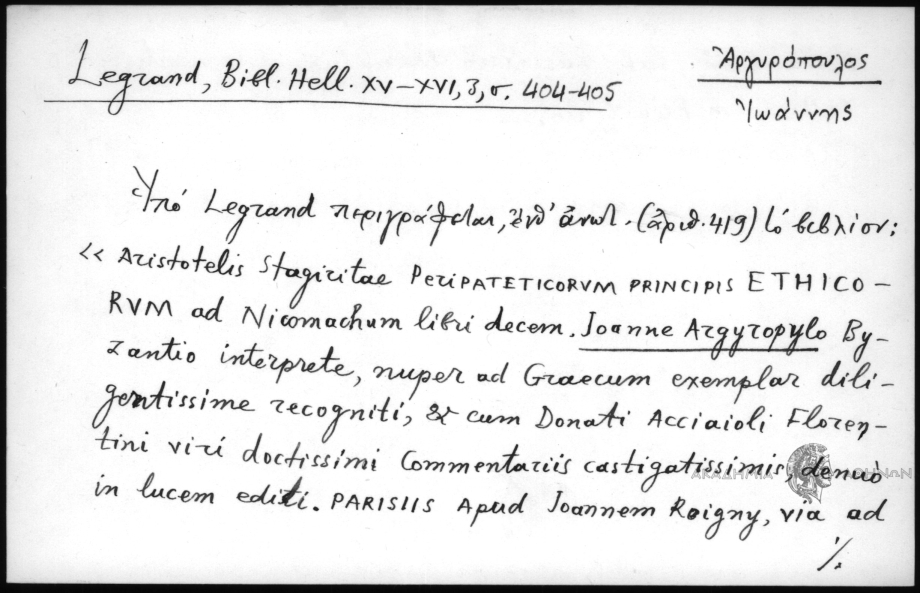 Legrand, Bibl. Hell. XV–XVI, 3, σ. 404-405
Ἀργυρόπουλος
Ἰωάννης
Ὑπό Legrand περιγράφεται, ἐνθ' ἀνωτ. (ἀριθ. 419) τό βιβλίον:
<< Aristotelis Stagiritae PeriPATETICORVM PRINCIPIS ETHICO-
RVM ad Nicomachum libri decem. Joanne Argyropylo By-
zantio interprete, nuper ad Graecum exemplar dili-
gentissime recogniti, & cum Donati Acciaioli Floren-
tini viri doctissimi Commentariis castigatissimis, denuò
in lucem editi. PARISIIS Apud Joannem Roigny, via ad
ΑΚΑΔΗΜΙΑ ΑΘΗΝΩΝ
./.